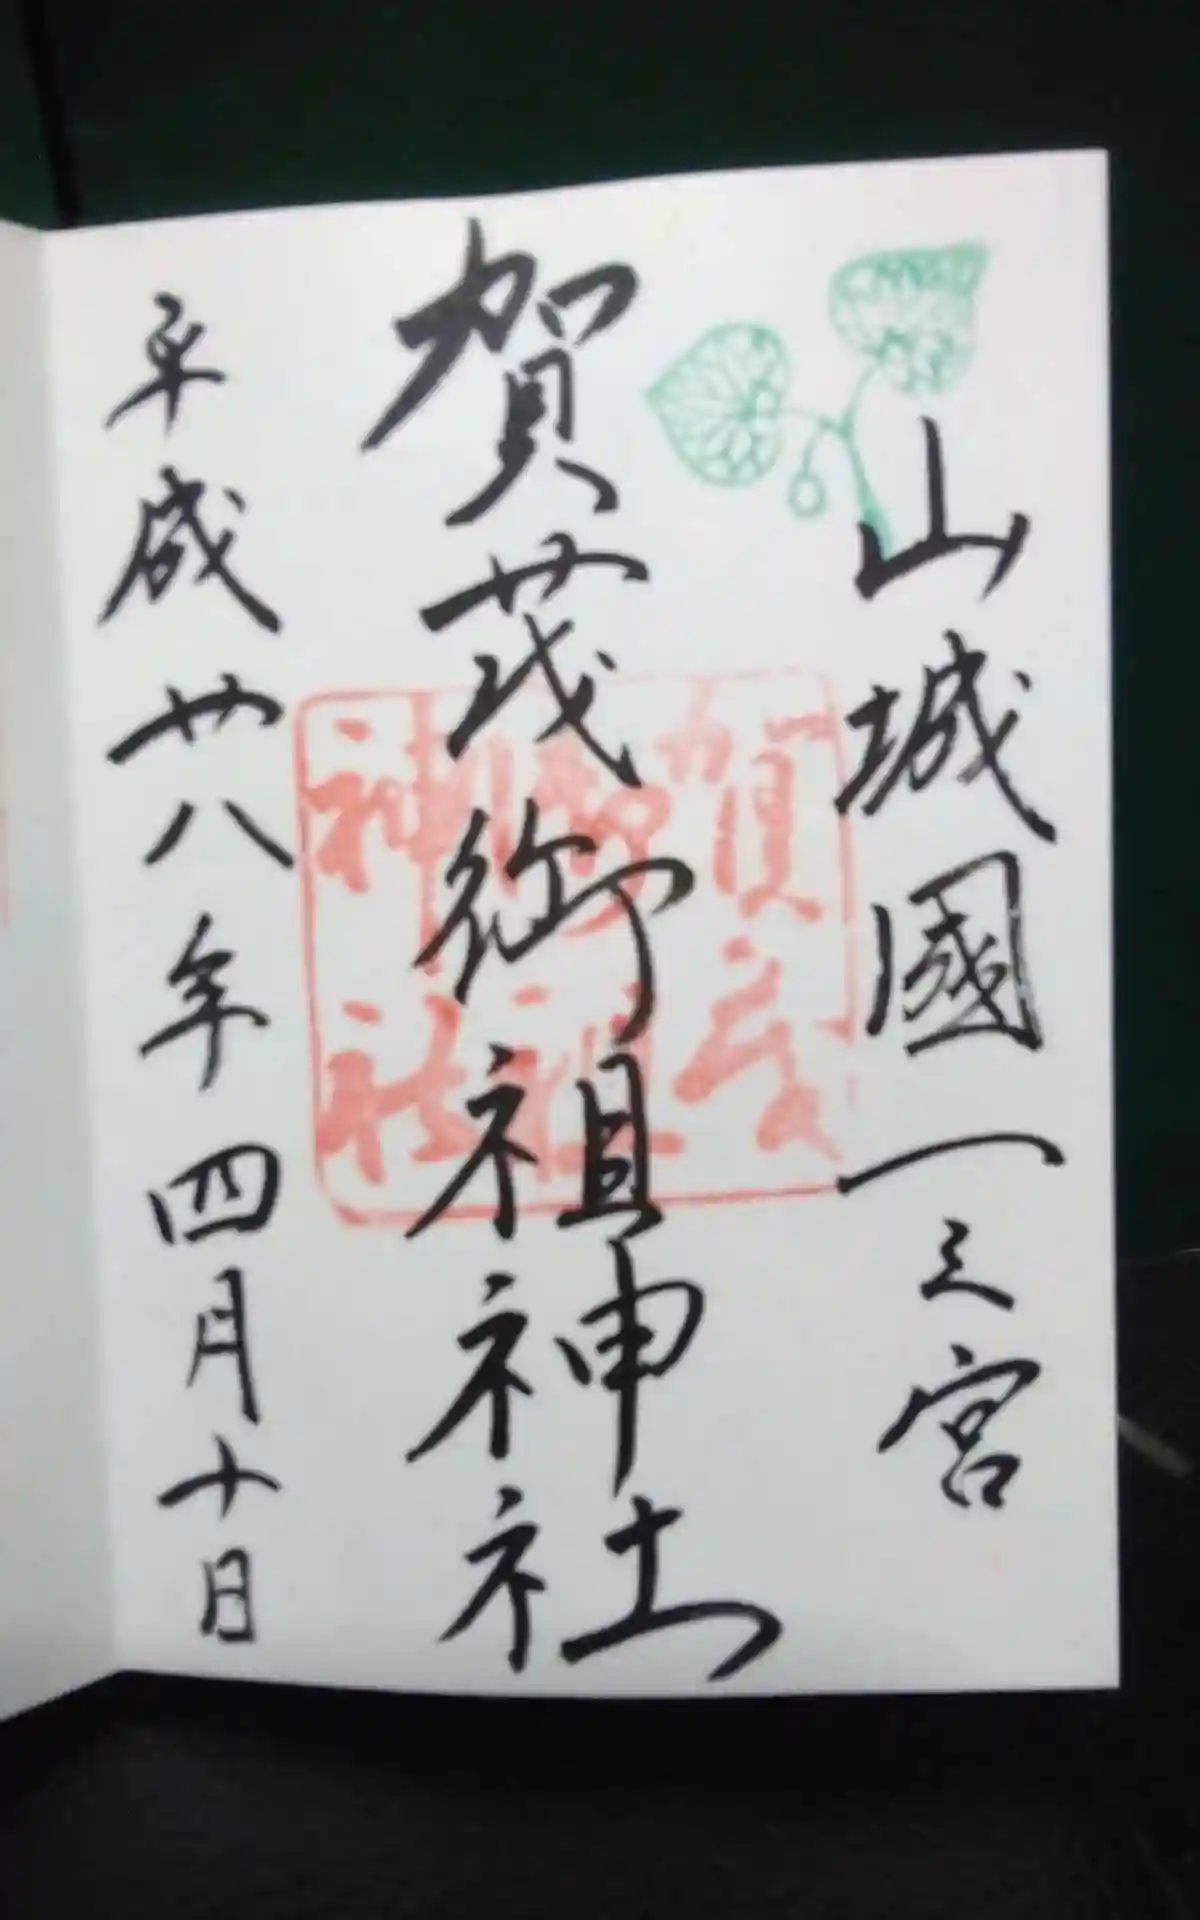 山城國一之宮
賀茂御祖神社
賀茂
御祖
神社
平成廿八年四月十日